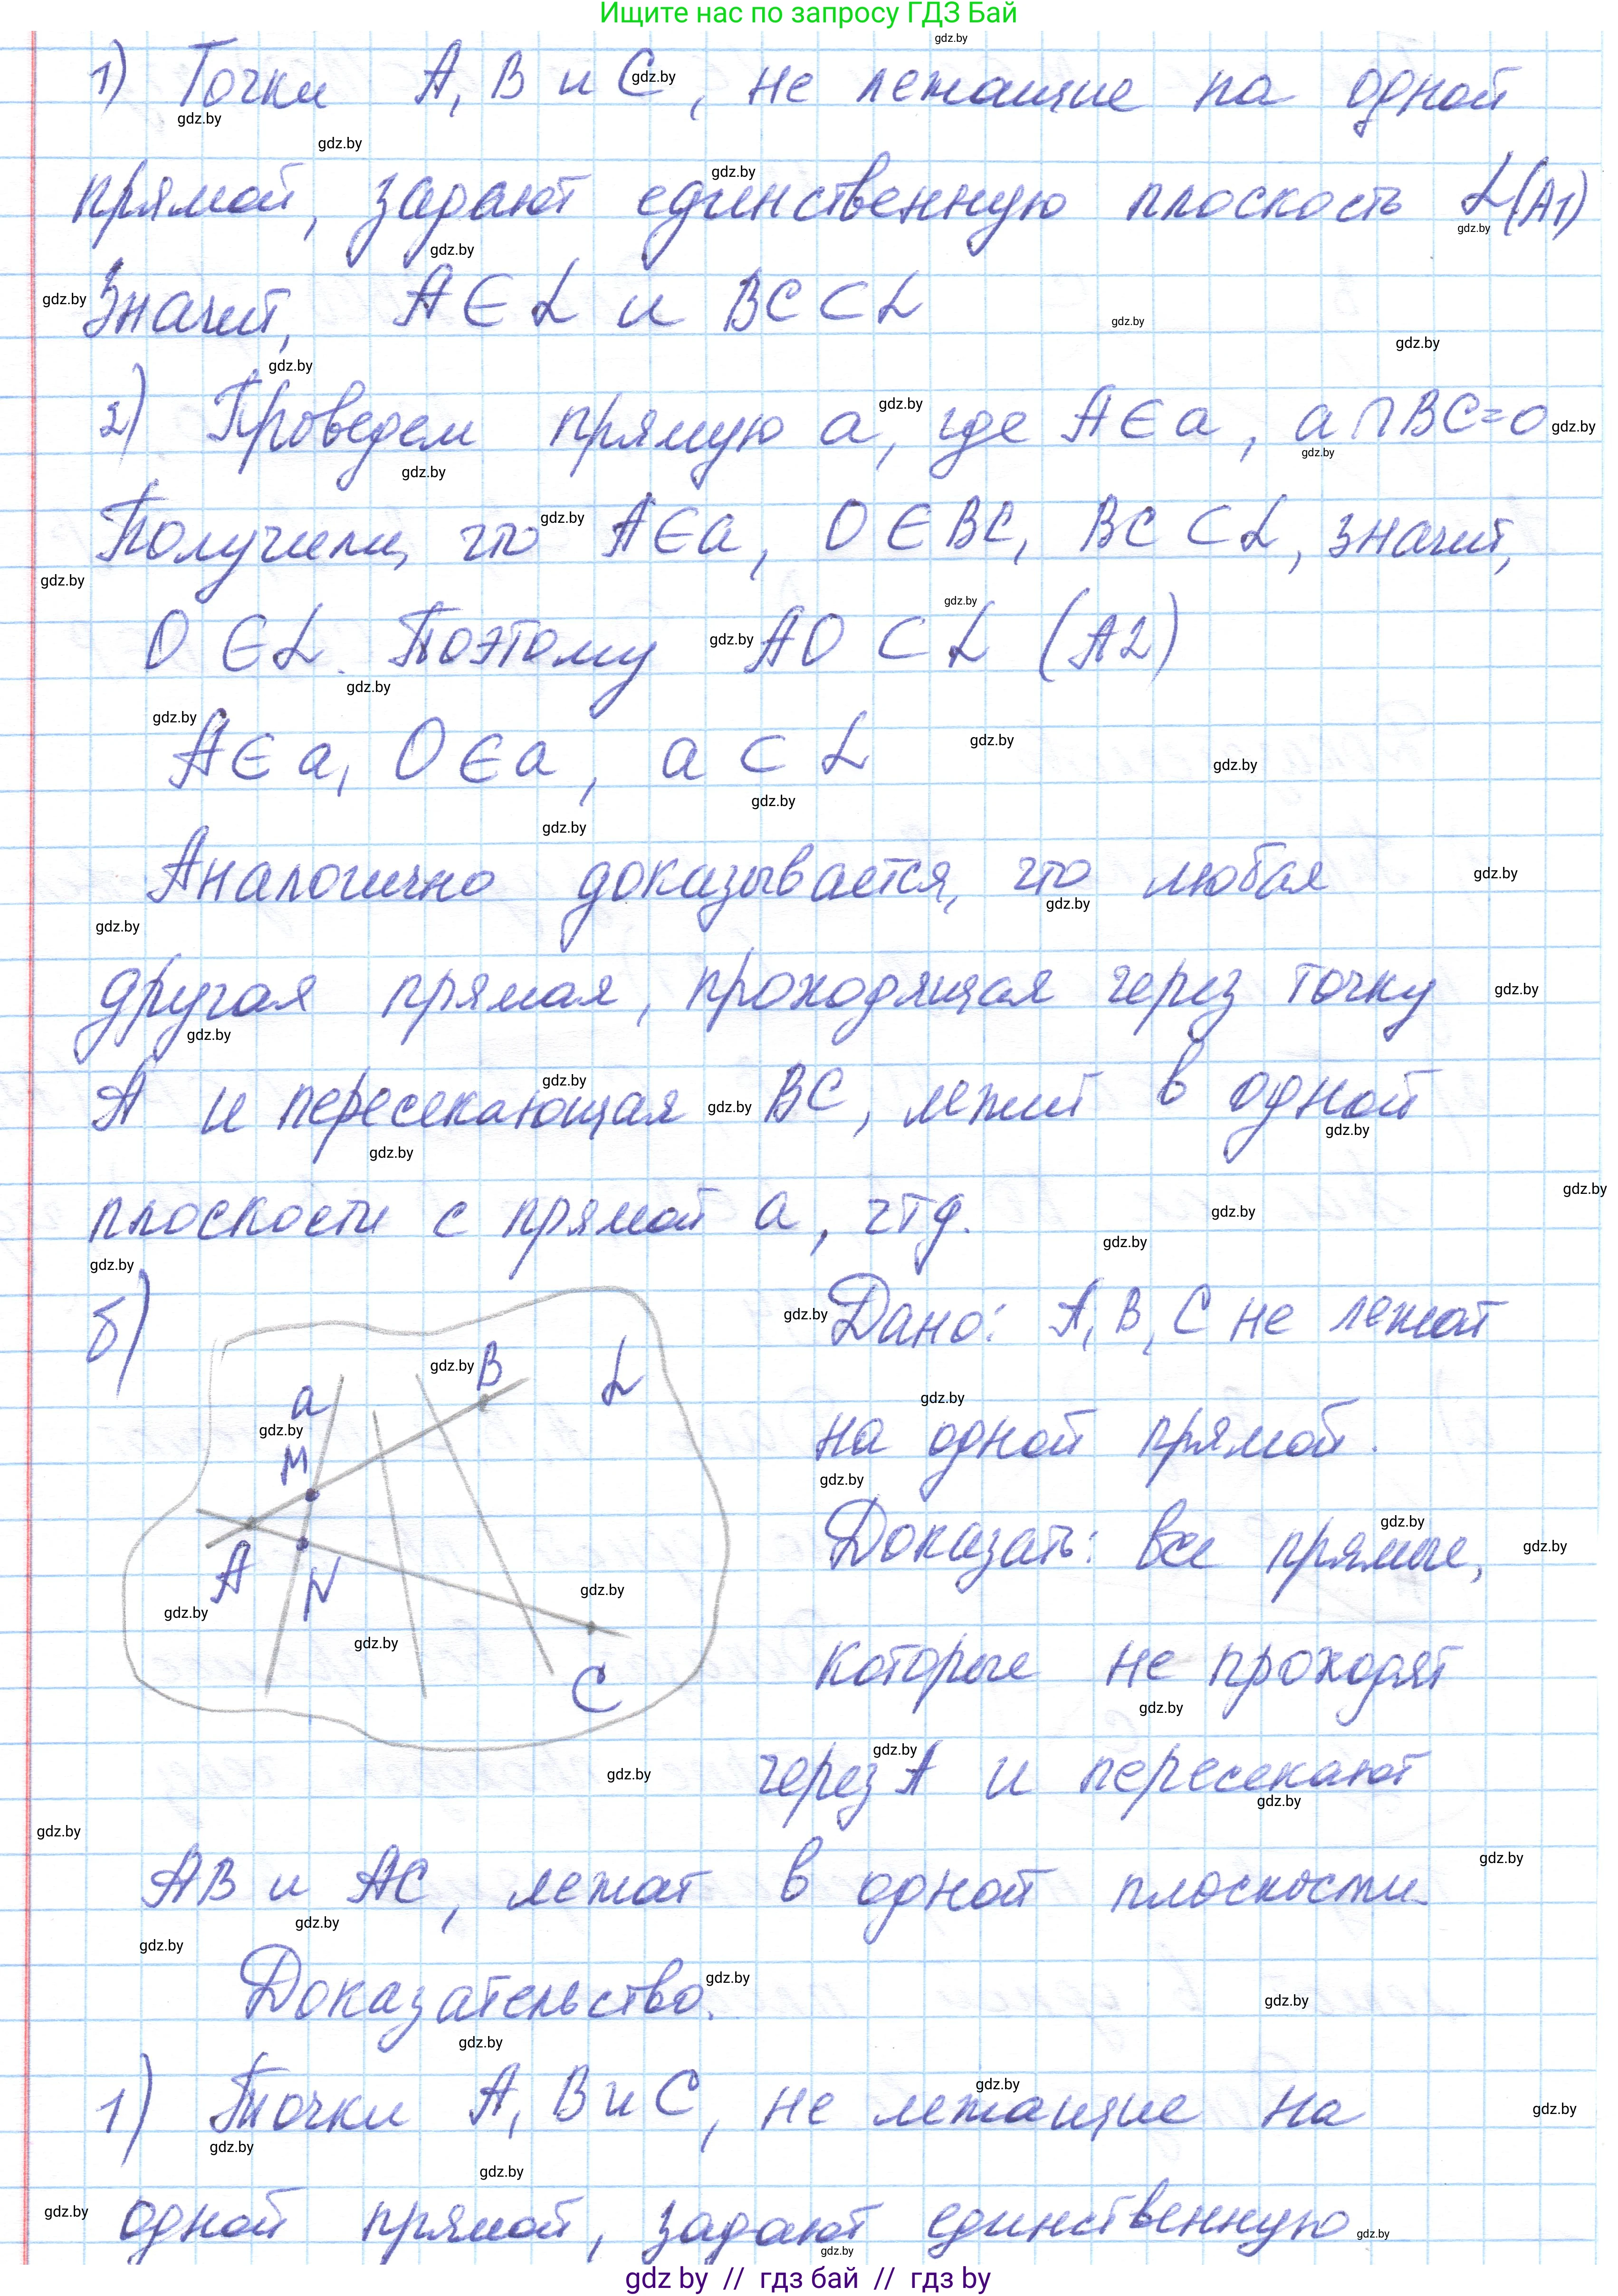 Ищите нас по запросу ГДЗ Бай
1) Точки A, B и C, не лежащие на одной
прямой, задают единственную плоскость α (A1)
Значит, A ∈ α и BC ⊂ α
2) Проведем прямую a, где A ∈ a, a ∩ BC = O
Получили, что A ∈ a, O ∈ BC, BC ⊂ α, значит,
O ∈ α. Поэтому AO ⊂ α (A2)
A ∈ a, O ∈ a, a ⊂ α
Аналогично доказывается, что любая
другая прямая, проходящая через точку
A и пересекающая BC, лежит в одной
плоскости с прямой a, чтд.
б)
a
B
α
M
A
N
C
Дано: A, B, C не лежат
на одной прямой.
Доказать: все прямые,
которые не проходят
через A и пересекают
AB и AC, лежат в одной плоскости.
Доказательство.
1) Точки A, B и C, не лежащие на
одной прямой, задают единственную
gdz by // гдз бай // гдз by